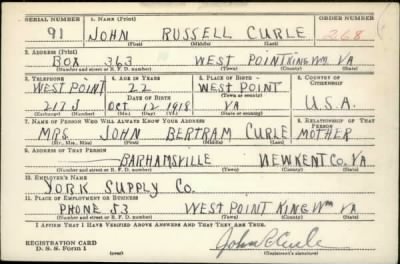 SERIAL NUMBER 1. NAME (Print) ORDER NUMBER
91 JOHN RUSSELL CURLE 268
(First) (Middle) (Last)
2. ADDRESS (Print)
BOX 363 WEST POINT KING WM. VA
(Number and street or R. F. D. number) (Town) (County) (State)
3. TELEPHONE 4. AGE IN YEARS 5. PLACE OF BIRTH 6. COUNTRY OF CITIZENSHIP
WEST POINT 22 WEST POINT
DATE OF BIRTH
217J OCT 12 1918 VA U.S.A.
(Exchange) (Number) (Mo.) (Day) (Yr.) (State or country)
7. NAME OF PERSON WHO WILL ALWAYS KNOW YOUR ADDRESS 8. RELATIONSHIP OF THAT PERSON
MRS JOHN BERTRAM CURLE MOTHER
(Mr., Mrs., Miss) (First) (Middle) (Last)
9. ADDRESS OF THAT PERSON
BARHAMSVILLE NEW KENT CO. VA
(Number and street or R. F. D. number) (Town) (County) (State)
10. EMPLOYER'S NAME
YORK SUPPLY CO.
11. PLACE OF EMPLOYMENT OR BUSINESS
PHONE 53 WEST POINT KING WM VA
(Number and street or R. F. D. number) (Town) (County) (State)
I AFFIRM THAT I HAVE VERIFIED ABOVE ANSWERS AND THAT THEY ARE TRUE.
REGISTRATION CARD
D. S. S. Form 1 (over) (Registrant's signature)
John R Curle